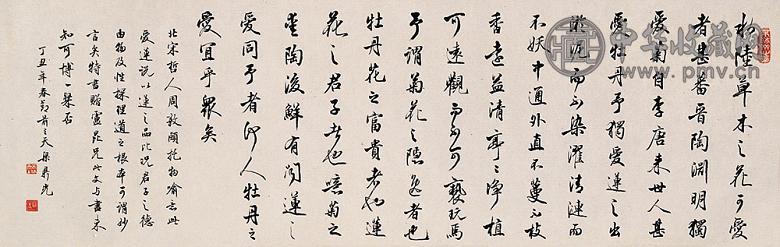 水陸草木之花可愛
者甚蕃晉陶淵明獨
愛菊自李唐來世人甚
愛牡丹予獨愛蓮之出
淤泥而不染濯清漣而
不妖中通外直不蔓不枝
香遠益清亭亭淨植
可遠觀而不可褻玩焉
予謂菊花之隱逸者也
牡丹花之富貴者也蓮
花之君子者也噫菊之
愛陶後鮮有聞蓮之
愛同予者何人牡丹之
愛宜乎眾矣
北宋哲人周敦頤托物喻志此
愛蓮說以蓮之品比況君子之德
由物及性探理道之根本可謂妙
言矣特書贈
兄此文与畫未
知可博一粲否
丁丑年春節前三天梁鼎光
中华收藏网
www.pmv.cn